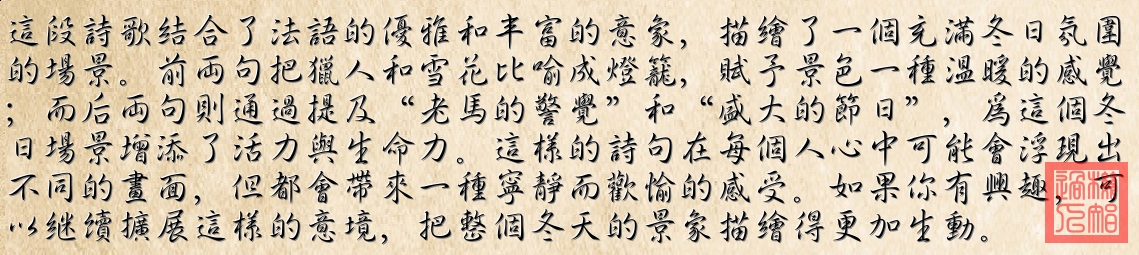 這段詩歌結合了法語的優雅和丰富的意象，描繪了一個充滿冬日氛圍
的場景。前両句把獵人和雪花比喻成燈籠，賦予景色一種溫暖的感覺
；而后両句則通過提及“老馬的警覺”和“盛大的節日”，爲這個冬
日場景增添了活力與生命力。這樣的詩句在每個人心中可能會浮現出
不同的畫面，但都會帶來一種寧靜而歡愉的感受。如果你有興趣，可
以继續擴展這樣的意境，把整個冬天的景象描繪得更加生動。